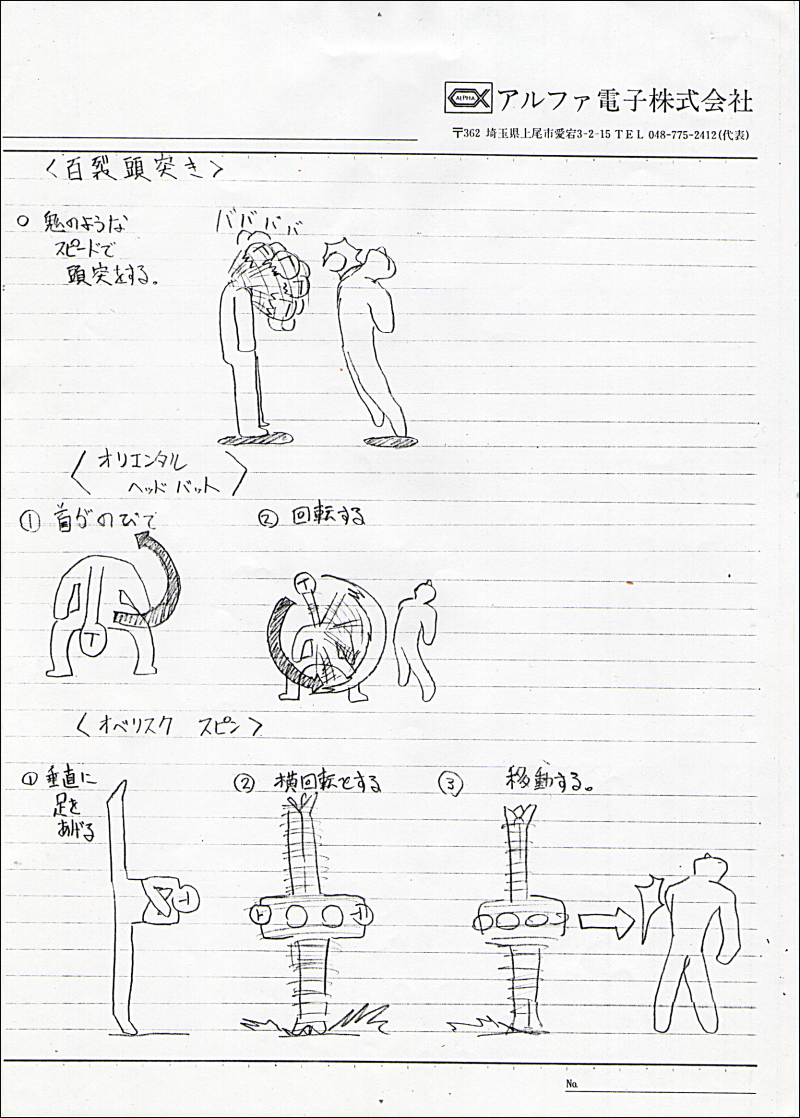 ALPHA アルファ電子株式会社
〒362 埼玉県上尾市愛宕3-2-15 TEL 048-775-2412(代表)
〈百裂頭突き〉
○ 鬼のような
スピードで
頭突をする。
ババババ
T
T
T
〈オリエンタル
ヘッドバット〉
① 首がのびて
T
② 回転する
T
〈オベリスク スピン〉
① 垂直に
足を
あげる
T
② 横回転をする
T
T
③ 移動する。
No.